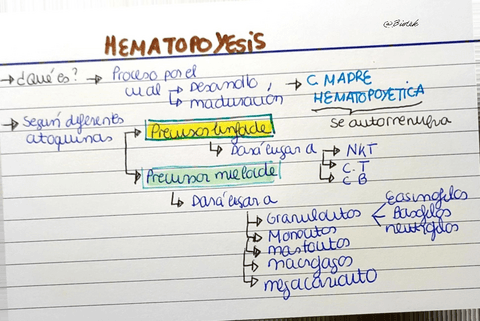 @Biotek
HEMATOPOYESIS
→ ¿Qué es? → Proceso por el cual → Desarrollo, → C. MADRE
→ maduración HEMATOPOYETICA
se autorrenueva
→ Según diferentes
citoquinas
→ Precursor linfoide
→ Dará lugar a → NKT
→ C.T
→ C B
→ Precursor mieloide
→ Dará lugar a
→ Granulocitos Easinofilos
→ Monocitos Basofilos
→ mastocitos neutrofilos
→ macrofagos
→ megacariocito